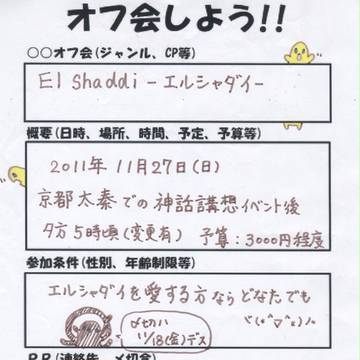 オフ会しよう!!
○○オフ会(ジャンル、CP等)
El Shaddi -エルシャダイ-
概要(日時、場所、時間、予定、予算等)
2011年 11月27日(日)
京都太秦での神話講想イベント後
夕方5時頃(変更有) 予算:3000円程度
参加条件(性別、年齢制限等)
エルシャダイを愛する方ならどなたでも
〆切ハ
11/18(金)デス
PR(連絡先、〆切含)